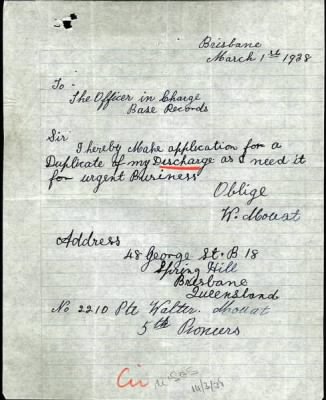 Brisbane
March 1st 1938
To
The Officer in Charge
Base Records
Sir
I hereby Make application for a
Duplicate of my Discharge as I need it
for urgent Business
Oblige
W. Mouat
Address
48 George St. B 18
Spring Hill
Brisbane
Queensland
No 2210 Pte Walter. Mouat
5th Pioneers